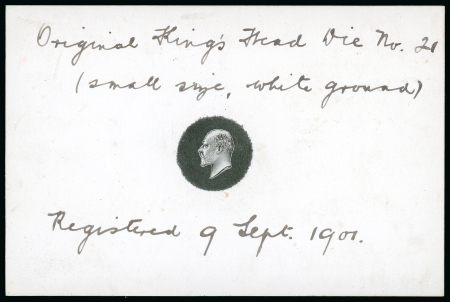 Original King's Head Die No. 2a
(small size, white ground)
Registered 9 Sept. 1901.